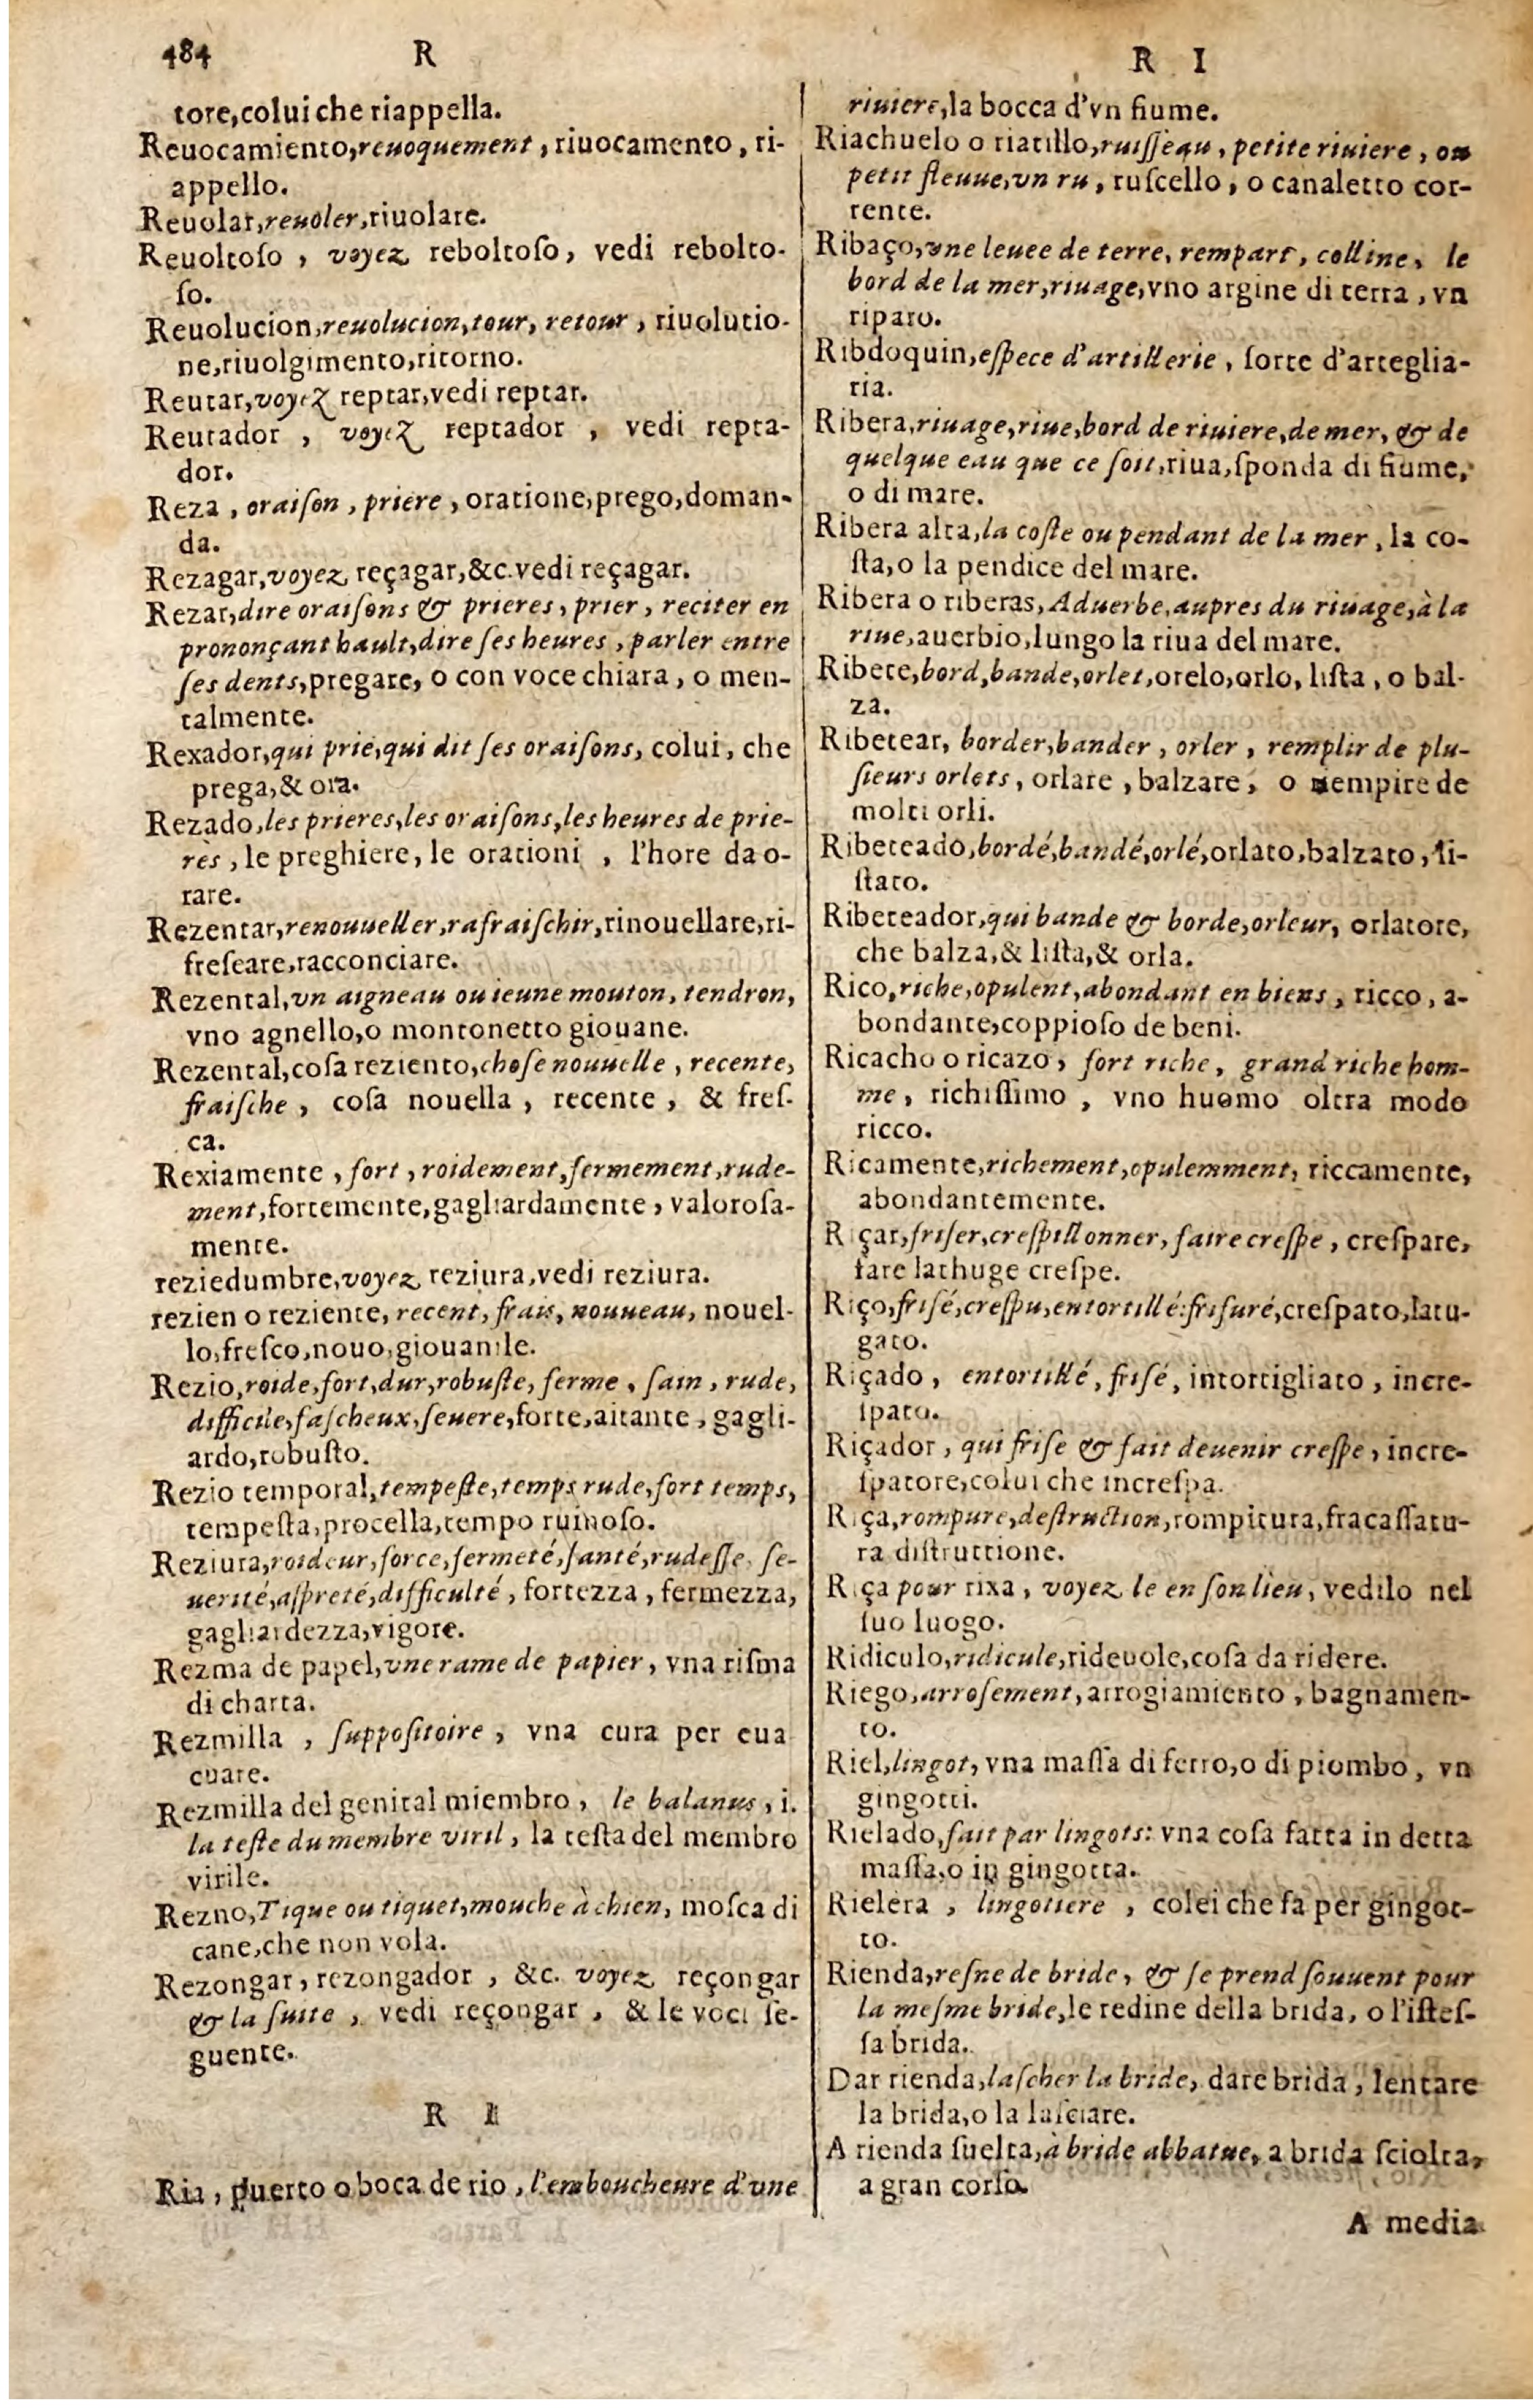 484 R
R I
tore,colui che riappella.
Reuocamiento,reuoquement, riuocamento, ri-
appello.
Reuolar,reuoler,riuolare.
Reuoltoſo, voyez reboltoſo, vedi rebolto-
ſo.
Reuolucion,reuolucion,tour, retour, riuolutio-
ne,riuolgimento,ritorno.
Reutar,voyez reptar,vedi reptar.
Reutador, voyez reptador, vedi repta-
dor.
Reza, oraiſon, priere, oratione,prego,doman-
da.
Rezagar,voyez reçagar,&c.vedi reçagar.
Rezar,dire oraiſons & prieres, prier, reciter en
prononçant hault,dire ſes heures, parler entre
ſes dents,pregare, o con voce chiara, o men-
talmente.
Rexador,qui prie,qui dit ſes oraiſons, colui, che
prega,& ora.
Rezado,les prieres,les oraiſons,les heures de prie-
rès, le preghiere, le orationi, l'hore da o-
rare.
Rezentar,renouueller,rafraiſchir,rinouellare,ri-
freſeare,racconciare.
Rezental,vn aigneau ou ieune mouton, tendron,
vno agnello,o montonetto giouane.
Rezental,coſa reziento,choſe nouuelle, recente,
fraiſche, coſa nouella, recente, & freſ-
ca.
Rexiamente, fort, roidement,fermement,rude-
ment,fortemente,gagliardamente, valoroſa-
mente.
reziedumbre,voyez reziura,vedi reziura.
rezien o reziente, recent, frais, nouueau, nouel-
lo,freſco,nouo,giouanile.
Rezio,roide,fort,dur,robuſte, ferme, ſain, rude,
difficile,faſcheux,ſeuere,forte,aitante, gagli-
ardo,robuſto.
Rezio temporal,tempeſte,temps rude,fort temps,
tempeſta,procella,tempo ruinoſo.
Reziura,roideur,force,fermeté,ſanté,rudeſſe, ſe-
uerité,aſpreté,difficulté, fortezza, fermezza,
gagliardezza,vigore.
Rezma de papel,vne rame de papier, vna riſma
di charta.
Rezmilla, ſuppoſitoire, vna cura per eua
cuare.
Rezmilla del genital miembro, le balanus, i.
la teſte du membre viril, la teſta del membro
virile.
Rezno,Tique ou tiquet,mouche à chien, moſca di
cane,che non vola.
Rezongar, rezongador, &c. voyez reçongar
& la ſuite, vedi reçongar, & le voci ſe-
guente.
R I
Ria, puerto o boca de rio, l'emboucheure d'vne
riuiere,la bocca d'vn fiume.
Riachuelo o riatillo,ruiſſeau, petite riuiere, ou
petit fleuue,vn ru, ruſcello, o canaletto cor-
rente.
Ribaço,vne leuee de terre, rempart, colline, le
bord de la mer,riuage,vno argine di terra, vn
riparo.
Ribdoquin,eſpece d'artillerie, ſorte d'arteglia-
ria.
Ribera,riuage,riue,bord de riuiere,de mer, & de
quelque eau que ce ſoit,riua,ſponda di fiume,
o di mare.
Ribera alta,la coſte ou pendant de la mer, la co-
ſta,o la pendice del mare.
Ribera o riberas, Aduerbe,aupres du riuage,à la
riue,auerbio,lungo la riua del mare.
Ribete,bord,bande,orlet,orelo,orlo, liſta, o bal-
za.
Ribetear, border,bander, orler, remplir de plu-
ſieurs orlets, orlare, balzare, o riempire de
molti orli.
Ribeteado,bordé,bandé,orlé,orlato,balzato, li-
ſtato.
Ribeteador,qui bande & borde,orleur, orlatore,
che balza,& liſta,& orla.
Rico,riche,opulent,abondant en biens, ricco, a-
bondante,coppioſo de beni.
Ricacho o ricazo, fort riche, grand riche hom-
me, richiſſimo, vno huomo oltra modo
ricco.
Ricamente,richement,opulemment, riccamente,
abondantemente.
Riçar,friſer,creſpillonner, faire creſpe, creſpare,
fare lathuge creſpe.
Riço,friſé,creſpu,entortillé:friſuré,creſpato,latu-
gato.
Riçado, entortillé, friſé, intortigliato, incre-
ſpato.
Riçador, qui friſe & fait deuenir creſpe, incre-
ſpatore,colui che increſpa.
Riça,rompure,deſtruction,rompitura,fracaſſatu-
ra diſtruttione.
Riça pour rixa, voyez le en ſon lieu, vedilo nel
ſuo luogo.
Ridiculo,ridicule,rideuole,coſa da ridere.
Riego,arroſement,arrogiamiento, bagnamen-
to.
Riel,lingot, vna maſſa di ferro,o di piombo, vn
gingotti.
Rielado,fait par lingots: vna coſa fatta in detta
maſſa,o in gingotta.
Rielera, lingotiere, colei che fa per gingot-
to.
Rienda,reſne de bride, & ſe prend ſouuent pour
la meſme bride,le redine della brida, o l'iſteſ-
ſa brida.
Dar rienda,laſcher la bride, dare brida, lentare
la brida,o la laſciare.
A rienda ſuelta,à bride abbatue, a brida ſciolta,
a gran corſo.
A media